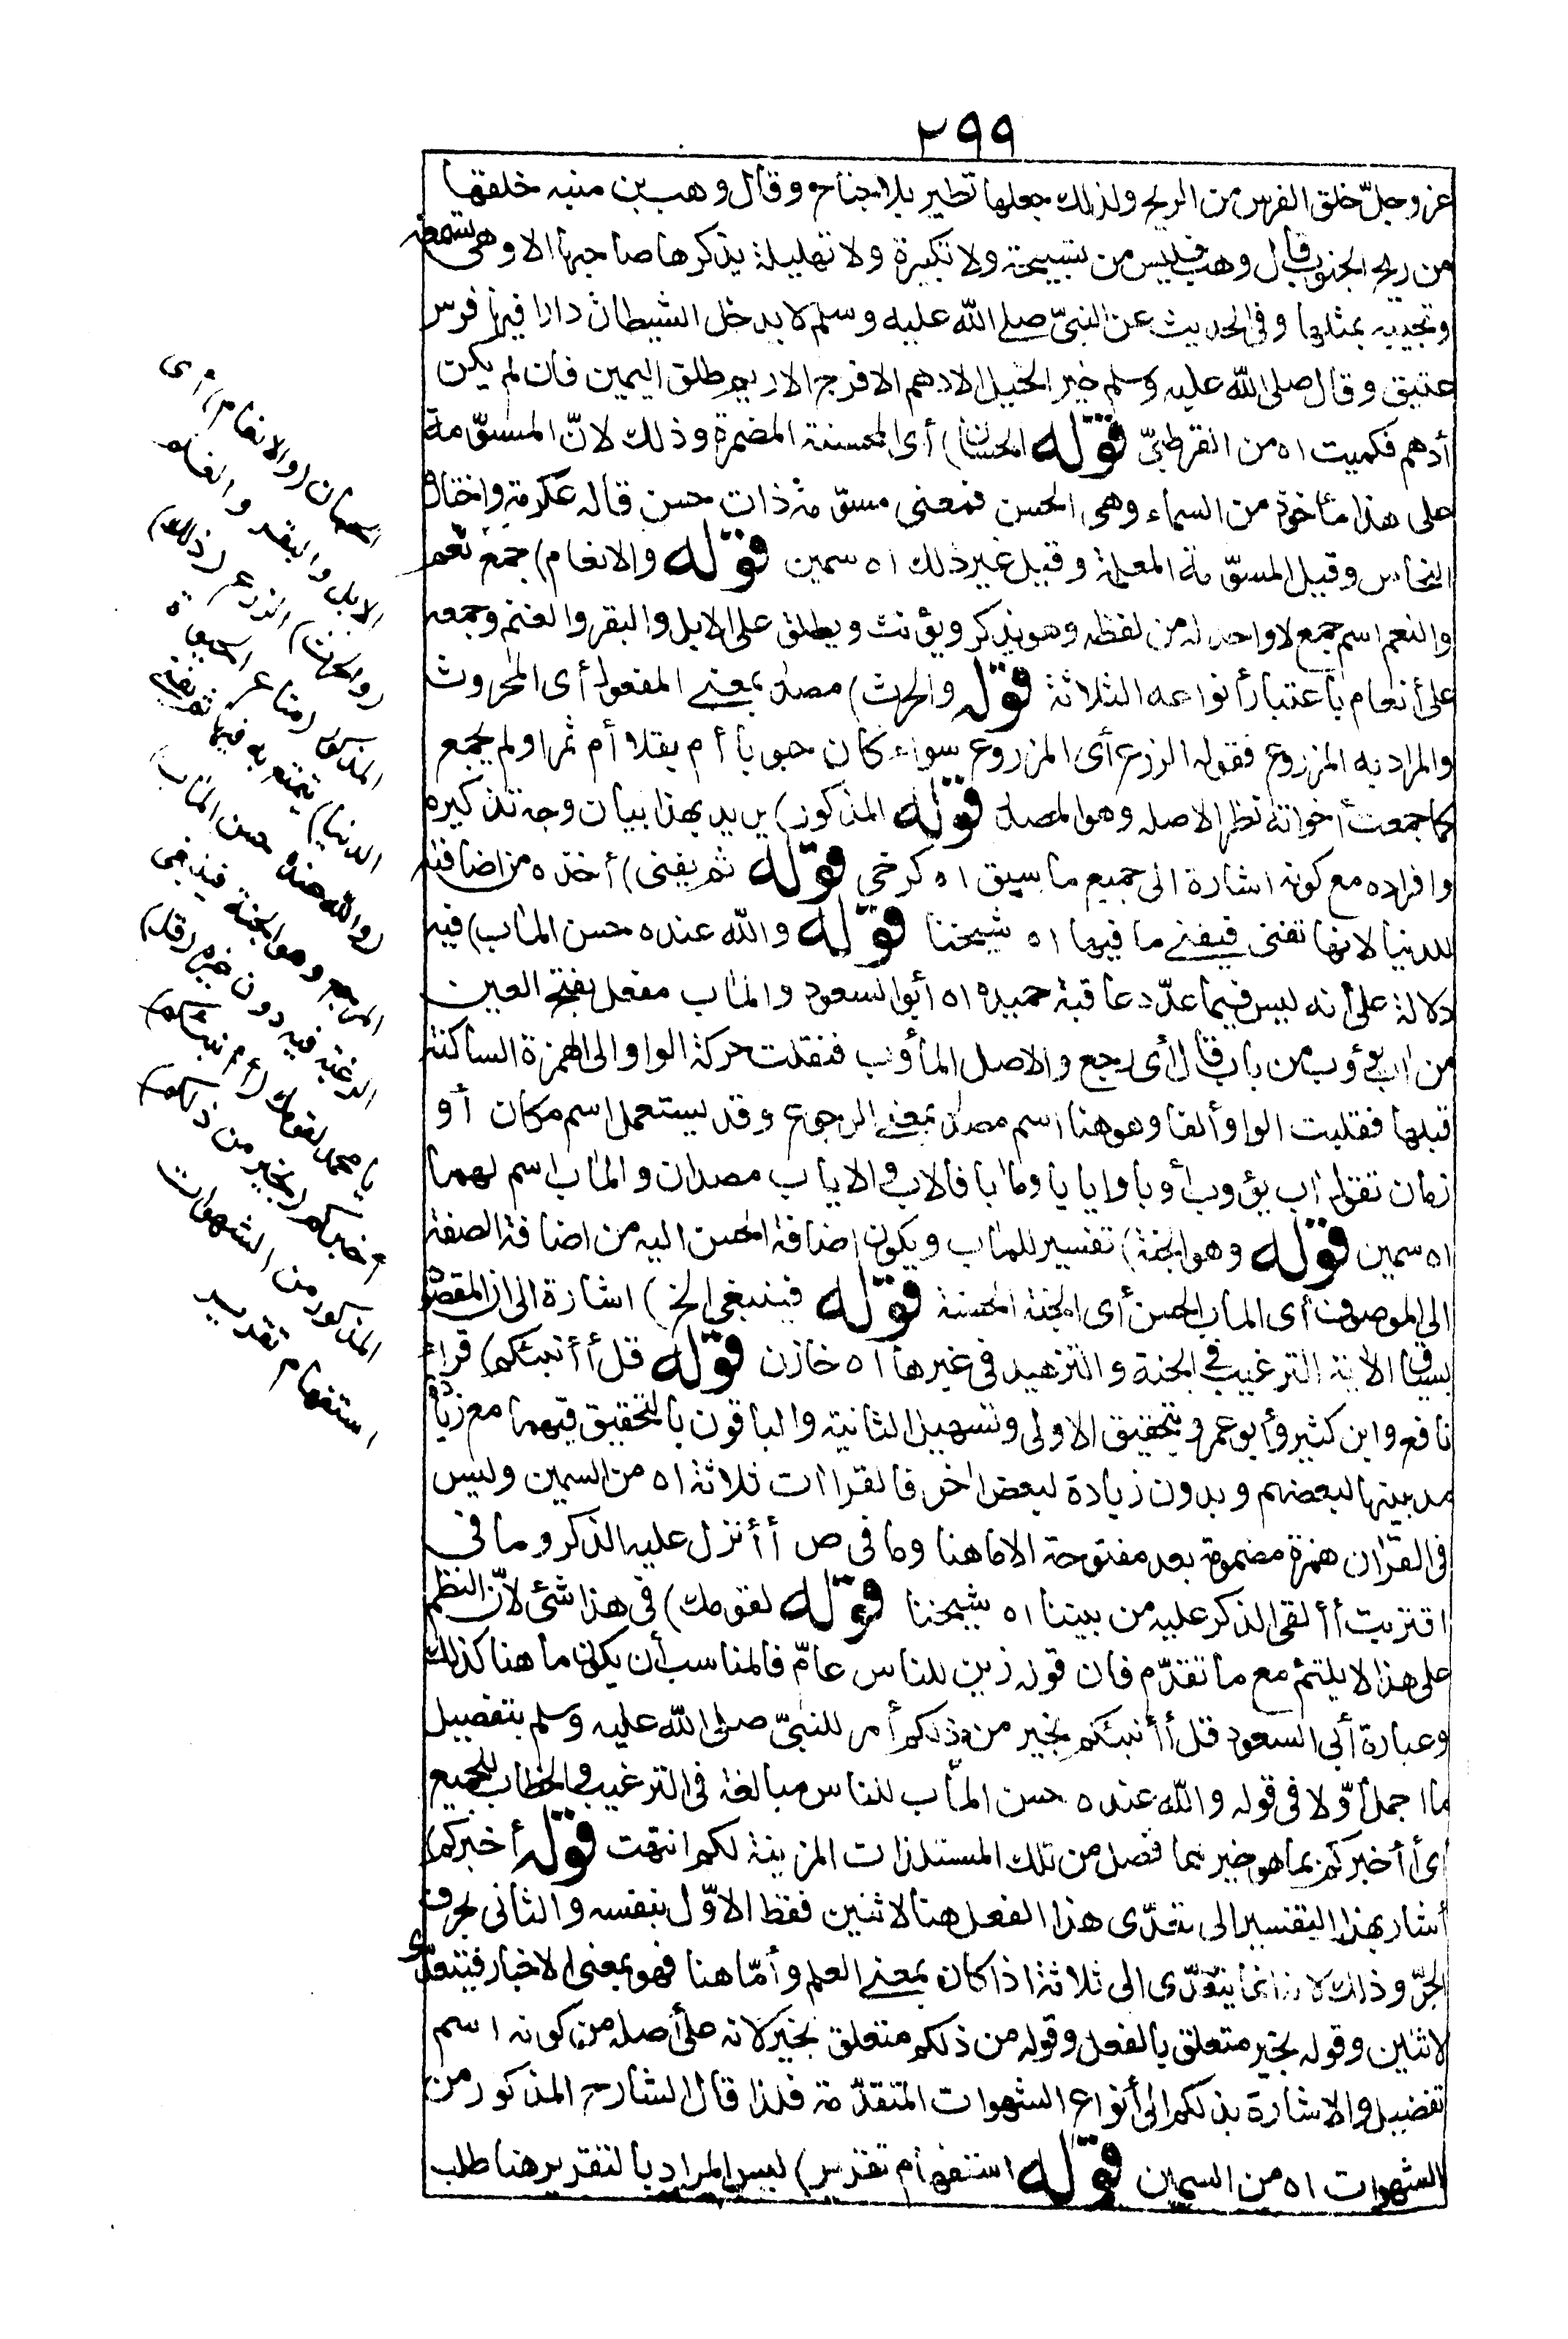 ٢٩٩
عز وجلّ خلق الفرس من الريح ولذلك جعلها تطير بلا جناح وقال وهب بن منبه خلقها
من ريح الجنوب قال وهب فليس من تسبيحة ولا تكبيرة ولا تهليلة يذكرها صاحبها الا وهى تسمعها
وتجيبه بمثلها وفى الحديث عن النبىّ صلى الله عليه وسلم لا يدخل الشيطان دارا فيها فرس
عتيق وقال صلى الله عليه وسلم خير الخيل الادهم الاقرح الارثم طلق اليمين فان لم يكن
أدهم فكميت اه من القرطبىّ قوله الحسان) أى المحسنة المضمرة وذلك لانّ المسوّمة
على هذا مأخوذة من السماء وهى الحسن فمعنى مسوّمة ذات حسن قاله عكرمة واختاره
النحاس وقيل المسوّمة المعلمة وقيل غير ذلك اه سمين قوله والانعام) جمع نعم
والنعم اسم جمع لا واحد له من لفظه وهو يذكر ويؤنث ويطلق على الابل والبقر والغنم وجمعه
على أنعام باعتبار أنواعه الثلاثة قوله والحرث) مصدر بمعنى المفعول أى المحروث
والمراد به المزروع فقوله الزرع أى المزروع سواء كان حبوبا أم بقلا أم ثمرا ولم يجمع
كما جمعت أخواته نظرا لاصله وهو المصدر قوله المذكور) يريد بهذا بيان وجه تذكيره
وافراده مع كونه اشارة الى جميع ما سبق اه كرخى قوله ثم يفنى) أخذه من اضافته
للدنيا لانها تفنى فيفنى ما فيها اه شيخنا قوله والله عنده حسن المآب) فيه
دلالة على أنه ليس فيما عدّد عاقبة حميدة اه أبو السعود والمآب مفعل بفتح العين
من اب يؤوب من باب قال أى رجع والاصل المأوب فنقلت حركة الواو الى الهمزة الساكنة
قبلها فقلبت الواو ألفا وهو هنا اسم مصدر بمعنى الرجوع وقد يستعمل اسم مكان أو
زمان تقول اب يؤوب أوبا وايابا ومآبا فالاوب والاياب مصدران والمآب اسم لهما
اه سمين قوله وهو الجنة) تفسير للمآب ويكون اضافة الحسن اليه من اضافة الصفة
الى الموصوف أى المآب الحسن أى الجنة الحسنة قوله فينبغى الخ) اشارة الى ان المقصود
بسياق الاية الترغيب فى الجنة والتزهيد فى غيرها اه خازن قوله قل أأنبئكم) قراء
نافع وابن كثير وأبو عمرو بتحقيق الاولى وتسهيل الثانية والباقون بالتحقيق فيهما مع زيادة
مد بينها لبعضهم وبدون زيادة لبعض اخر فالقراات ثلاثة اه من السمين وليس
فى القران همزة مضمومة بعد مفتوحة الا ما هنا وما فى ص أأنزل عليه الذكر وما فى
اقتربت أألقى الذكر عليه من بيننا اه شيخنا قوله لقومك) فى هذا شئ لانّ النظم
على هذا لا يلتئم مع ما تقدّم فان قوله زين للناس عامّ فالمناسب أن يكون ما هنا كذلك
وعبارة أبى السعود قل أأنبئكم بخير من ذلكم أمر للنبىّ صلى الله عليه وسلم بتفصيل
ما اجمل أوّلا فى قوله والله عنده حسن المآب للناس مبالغة فى الترغيب والخطاب للجميع
أى أأخبركم بما هو خير مما فصل من تلك المستلذات المزينة لكم انتهت قوله أخبركم)
أشار بهذا التفسير الى تعدّى هذا الفعل هنا لاثنين فقط الاوّل بنفسه والثانى بحرف
الجرّ وذلك لانه انما يتعدّى الى ثلاثة اذا كان بمعنى العلم وأمّا هنا فهو بمعنى الاخبار فيتعدّى
لاثنين وقوله بخير متعلق بالفعل وقوله من ذلكم متعلق بخير لانه على أصله من كونه اسم
تفضيل والاشارة بذلكم الى أنواع الشهوات المتقدّمة فلذا قال الشارح المذكور من
الشهوات اه من السمين قوله استفهام تقرير) ليس المراد بالتقرير هنا طلب
الحسان (والانعام) أى
الابل والبقر والغنم
(والحرث) الزرع (ذلك)
المذكور (متاع الحيوة
الدنيا) يتمتع به فيها ثم يفنى
(والله عنده حسن المآب)
المرجع وهو الجنة فينبغى
الرغبة فيه دون غيره (قل)
يا محمد لقومك (أأنبئكم)
أخبركم (بخير من ذلكم)
المذكور من الشهوات
استفهام تقرير